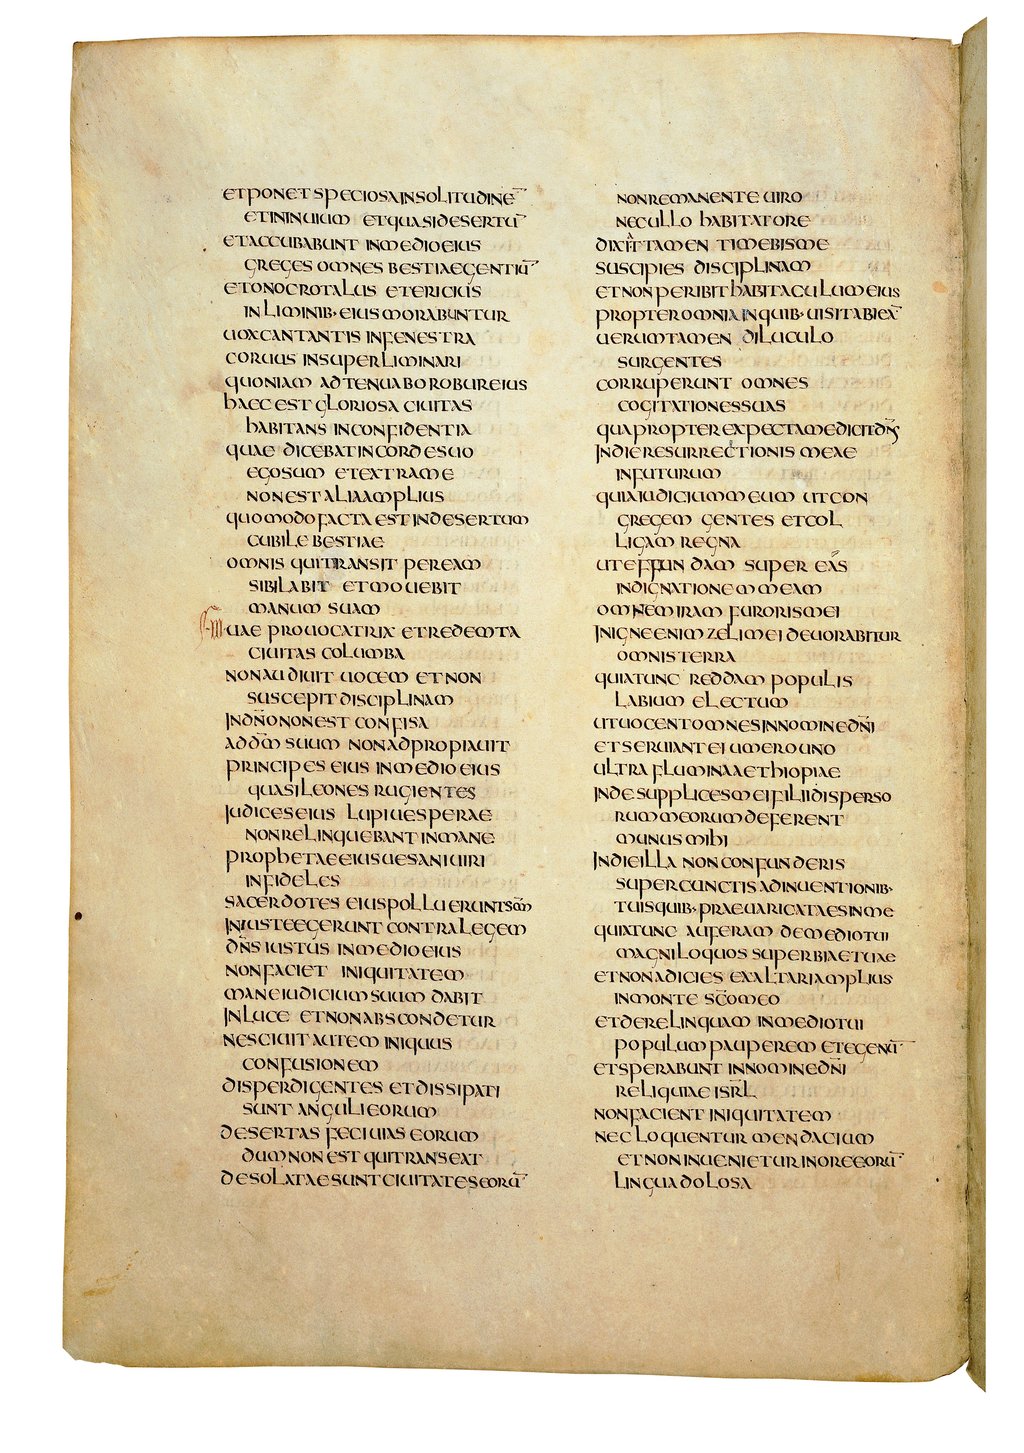 ET PONET SPECIOSA IN SOLITUDINĒ
ET IN INUIUM ET QUASI DESERTŪ
ET ACCUBABUNT IN MEDIO EIUS
GREGES OMNES BESTIAE GENTIŪ
ET ONOCROTALUS ET ERICIUS
IN LIMINIB· EIUS MORABUNTUR
UOX CANTANTIS IN FENESTRA
CORUUS IN SUPERLIMINARI
QUONIAM ADTENUABO ROBUR EIUS
HAEC EST GLORIOSA CIUITAS
HABITANS IN CONFIDENTIA
QUAE DICEBAT IN CORDE SUO
EGO SUM ET EXTRA ME
NON EST ALIA AMPLIUS
QUOMODO FACTA EST IN DESERTUM
CUBILE BESTIAE
OMNIS QUI TRANSIT PER EAM
SIBILABIT ET MOUEBIT
MANUM SUAM
UAE PROUOCATRIX ET REDEMTA
CIUITAS COLUMBA
NON AUDIUIT UOCEM ET NON
SUSCEPIT DISCIPLINAM
IN DN̄O NON EST CONFISA
AD DM̄ SUUM NON ADPROPIAUIT
PRINCIPES EIUS IN MEDIO EIUS
QUASI LEONES RUGIENTES
IUDICES EIUS LUPI UESPERAE
NON RELINQUEBANT IN MANE
PROPHETAE EIUS UESANI UIRI
INFIDELES
SACERDOTES EIUS POLLUERUNT SC̄M
INIUSTE EGERUNT CONTRA LEGEM
DN̄S IUSTUS IN MEDIO EIUS
NON FACIET INIQUITATEM
MANE IUDICIUM SUUM DABIT
IN LUCE ET NON ABSCONDETUR
NESCIUIT AUTEM INIQUUS
CONFUSIONEM
DISPERDI GENTES ET DISSIPATI
SUNT ANGULI EORUM
DESERTAS FECI UIAS EORUM
DUM NON EST QUI TRANSEAT
DESOLATAE SUNT CIUITATES EORŪ
NON REMANENTE UIRO
NEC ULLO HABITATORE
DIXI TAMEN TIMEBIS ME
SUSCIPIES DISCIPLINAM
ET NON PERIBIT HABITACULUM EIUS
PROPTER OMNIA IN QUIB· UISITABI EĀ
UERUMTAMEN DILUCULO
SURGENTES
CORRUPERUNT OMNES
COGITATIONES SUAS
QUAPROPTER EXPECTA ME DICIT DN̄S
IN DIE RESURRECTIONIS MEAE
IN FUTURUM
QUIA IUDICIUM MEUM UT CON
GREGEM GENTES ET COL
LIGAM REGNA
UT EFFUNDAM SUPER EAS
INDIGNATIONEM MEAM
OMNEM IRAM FURORIS MEI
IN IGNE ENIM ZELI MEI DEUORABITUR
OMNIS TERRA
QUIA TUNC REDDAM POPULIS
LABIUM ELECTUM
UT UOCENT OMNES IN NOMINE DN̄I
ET SERUIANT EI UMERO UNO
ULTRA FLUMINA AETHIOPIAE
INDE SUPPLICES MEI FILII DISPERSO
RUM MEORUM DEFERENT
MUNUS MIHI
IN DIE ILLA NON CONFUNDERIS
SUPER CUNCTIS ADINUENTIONIB·
TUIS QUIB· PRAEUARICATA ES IN ME
QUIA TUNC AUFERAM DE MEDIO TUI
MAGNILOQUOS SUPERBIAE TUAE
ET NON ADICIES EXALTARI AMPLIUS
IN MONTE SC̄O MEO
ET DERELINQUAM IN MEDIO TUI
POPULUM PAUPEREM ET EGENŪ
ET SPERABUNT IN NOMINE DN̄I
RELIQUIAE ISRL̄
NON FACIENT INIQUITATEM
NEC LOQUENTUR MENDACIUM
ET NON INUENIETUR IN ORE EORŪ
LINGUA DOLOSA